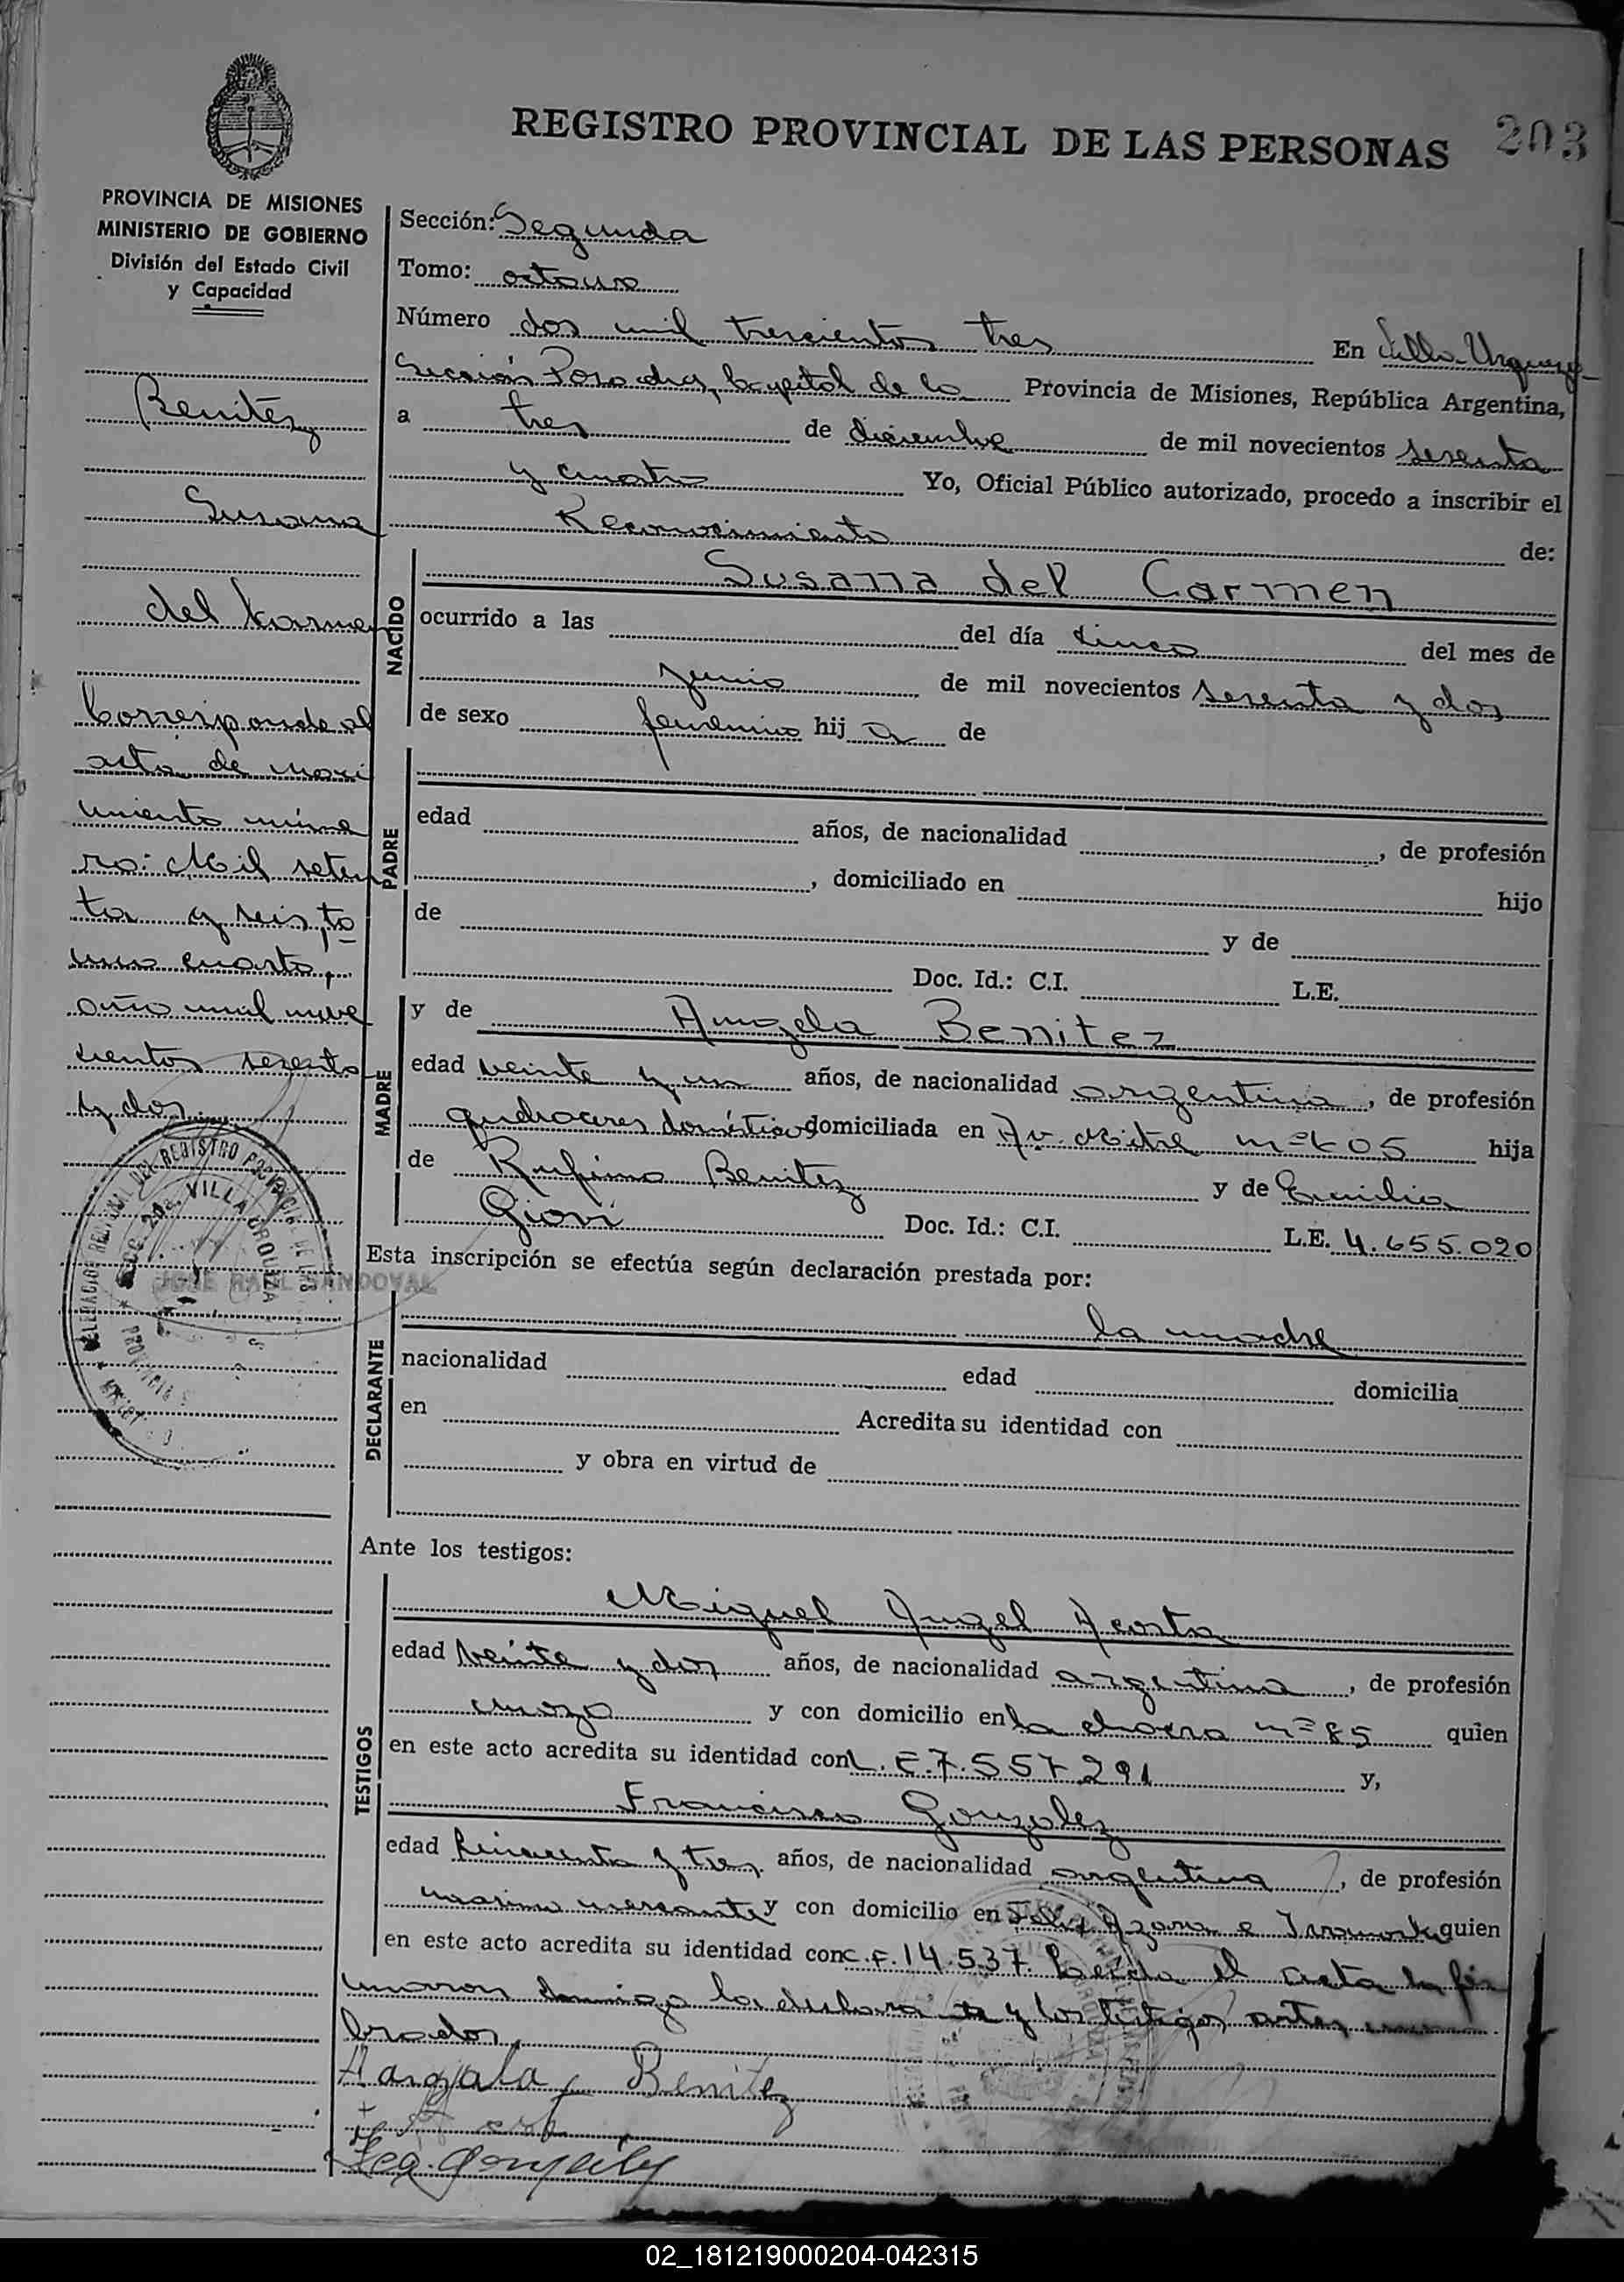 REGISTRO PROVINCIAL DE LAS PERSONAS
203
PROVINCIA DE MISIONES
MINISTERIO DE GOBIERNO
División del Estado Civil
y Capacidad
Benitez
Susana
del Carmen
Corresponde al
acta de naci
miento núme
ro: Mil seten
ta y seis, to
mo cuarto,
año mil nove
cientos sesenta
y dos.
JOSE RAUL SANDOVAL
Sección: Segunda
Tomo: octavo
Número dos mil trescientos tres En Villa Urquiza
Sección Posadas, Capital de la Provincia de Misiones, República Argentina,
a tres de diciembre de mil novecientos sesenta
y cuatro Yo, Oficial Público autorizado, procedo a inscribir el
Reconocimiento de:
NACIDO
Susana del Carmen
ocurrido a las del día cinco del mes de
junio de mil novecientos sesenta y dos
de sexo femenino hij a de
PADRE
edad años, de nacionalidad , de profesión
, domiciliado en hijo
de y de
Doc. Id.: C.I. L.E.
MADRE
y de Angela Benitez
edad veinte y un años, de nacionalidad argentina, de profesión
quehaceres domésticos domiciliada en Av. Mitre hija
de Rufino Benitez y de Emilia
Doc. Id.: C.I. L.E. 4.655.020
Esta inscripción se efectúa según declaración prestada por:
DECLARANTE
la madre
nacionalidad edad domicilia
en Acredita su identidad con
y obra en virtud de
Ante los testigos:
TESTIGOS
Miguel Angel Acosta
edad veinte y dos años, de nacionalidad argentina, de profesión
mozo y con domicilio en la chacra nº 85 quien
en este acto acredita su identidad con L.E. 7.557.291 y,
Francisco Gonzalez
edad cincuenta y tres años, de nacionalidad argentina, de profesión
marino mercante y con domicilio en Felix Azara e quien
en este acto acredita su identidad con 14.537. Leida el acta la fir
maron conmigo la declarante y los testigos antes nom
brados.
Aangala Benitez
Gonzalez
02_181219000204-042315